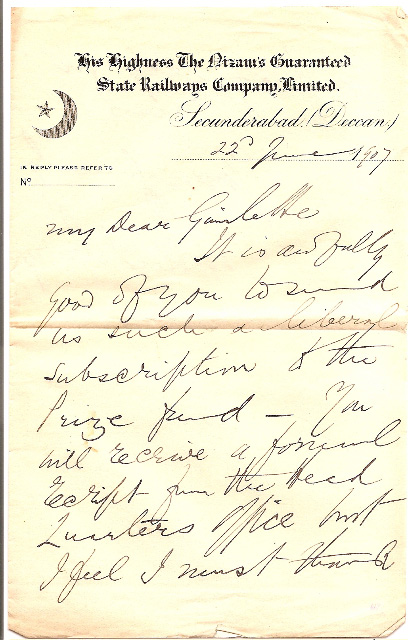 His Highness The Nizam's Guaranteed
State Railways Company, Limited.
Secunderabad. (Deccan.)
22d June 1907
IN REPLY PLEASE REFER TO
No
My Dear Gimlette
It is awfully
good of you to send
us such a liberal
subscription to the
Prize fund — You
will receive a formal
receipt from the Head
Quarters Office but
I feel I must thank